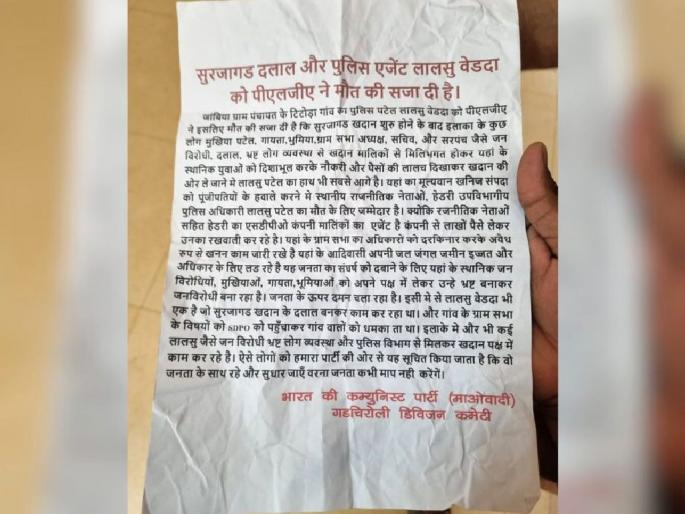 सुरजागड दलाल और पुलिस एजेंट लालसु वेडदा
को पीएलजीए ने मौत की सजा दी है।
जांबिया ग्राम पंचायत के टिटोड़ा गांव का पुलिस पटेल लालसु वेडदा को पीएलजीए
ने इसलिए मौत की सजा दी है कि सुरजागड खदान शुरु होने के बाद इलाका के कुछ
लोग मुखिया पटेल, गायता,भुमिया,ग्राम सभा अध्यक्ष, सचिव, और सरपंच जैसे जन
विरोधी, दलाल, भ्रष्ट लोग व्यवस्था से खदान मालिकों से मिलिभगत होकर यहां के
स्थानिक युवाओं को दिशाभूल करके नौकरी और पैसों की लालच दिखाकर खदान की
ओर ले जाने मे लालसु पटेल का हाथ भी सबसे आगे है। यहां का मूल्यवान खनिज संपदा
को पूंजीपतियों के हवाले करने मे स्थानीय राजनीतिक नेताओं, हेडरी उपविभागीय
पुलिस अधिकारी लालसु पटेल का मौत के लिए जम्मेदार है। क्योंकि रजनीतिक नेताओं
सहित हेडरी का एसडीपीओ कंपनी मालिकों का एजेंट है कंपनी से लाखों पैसे लेकर
उनका रखवाली कर रहे है। यहां के ग्राम सभा का अधिकारों को दरकिनार करके अवैध
रुप से खनन काम जारी रखे है यहां के आदिवासी अपनी जल जंगल जमीन इज्जत और
अधिकार के लिए लड रहे है यह जनता का संघर्ष को दबाने के लिए यहां के स्थानिक जन
विरोधियों, मुखिआओं, गायता,भूमियाओं को अपने पक्ष में लेकर उन्हे भ्रष्ट बनाकर
जनविरोधी बना रहा है। जनता के ऊपर दमन चला रहा है। इसी मे से लालसु वेडदा भी
एक है जो सुरजागड खदान के दलाल बनकर काम कर रहा था। और गांव के ग्राम सभा
के विषयों को SDPO को पहुँचाकर गांव वालों को धमका ता था। इलाके मे और भी कई
लालसु जैसे जन विरोधी भ्रष्ट लोग व्यवस्था और पुलिस विभाग से मिलकर खदान पक्ष में
काम कर रहे है। ऐसे लोगों को हमारा पार्टी की ओर से यह सूचित किया जाता है कि वो
जनता के साथ रहे और सुधार जाएँ वरना जनता कभी माप नही करेगें।
भारत की कम्युनिस्ट पार्टी (माओवादी)
गडचिरोली डिविजन कमेटी